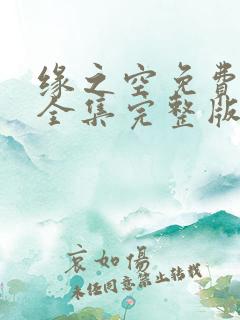 缘之空免费
全集完整版
哀如傷
未经同意禁止转载